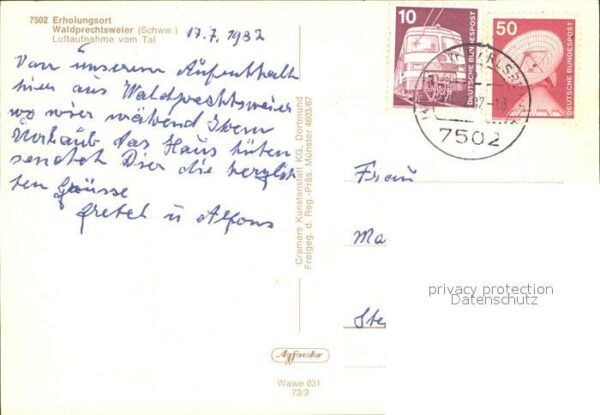 7502 Erholungsort
Waldprechtsweier (Schww.)
Luftaufnahme vom Tal
17.7.1982
Von unserem Aufenthalt
hier aus Waldprechtsweier
wo wir während Ihrem
Urlaub das Haus hüten
sendet Dier die herzlich
sten Grüsse
Gretel u Alfons
Cramers Kunstanstalt KG, Dortmund
Freigeg. d. Reg.-Präs. Münster 4603/67
10
DEUTSCHE BUNDESPOST
50
DEUTSCHE BUNDESPOST
7502
Frau
Ma
Ste
privacy protection
Datenschutz
Wawe 031
73/3